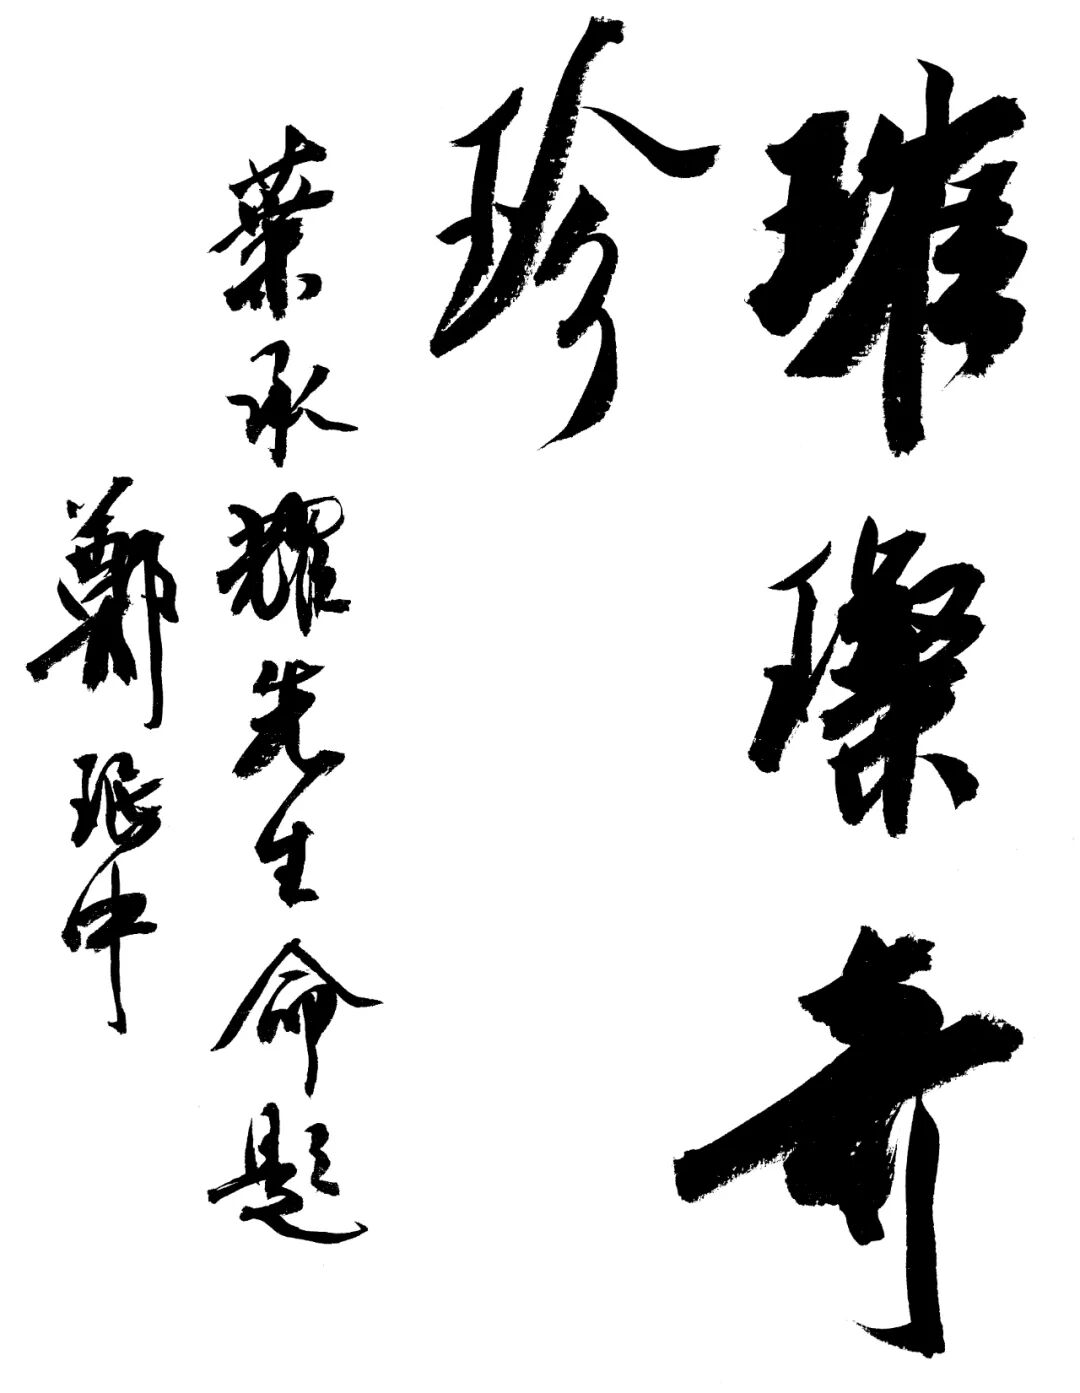 璀璨奇
珍
葉承耀先生命題
鄭珉中